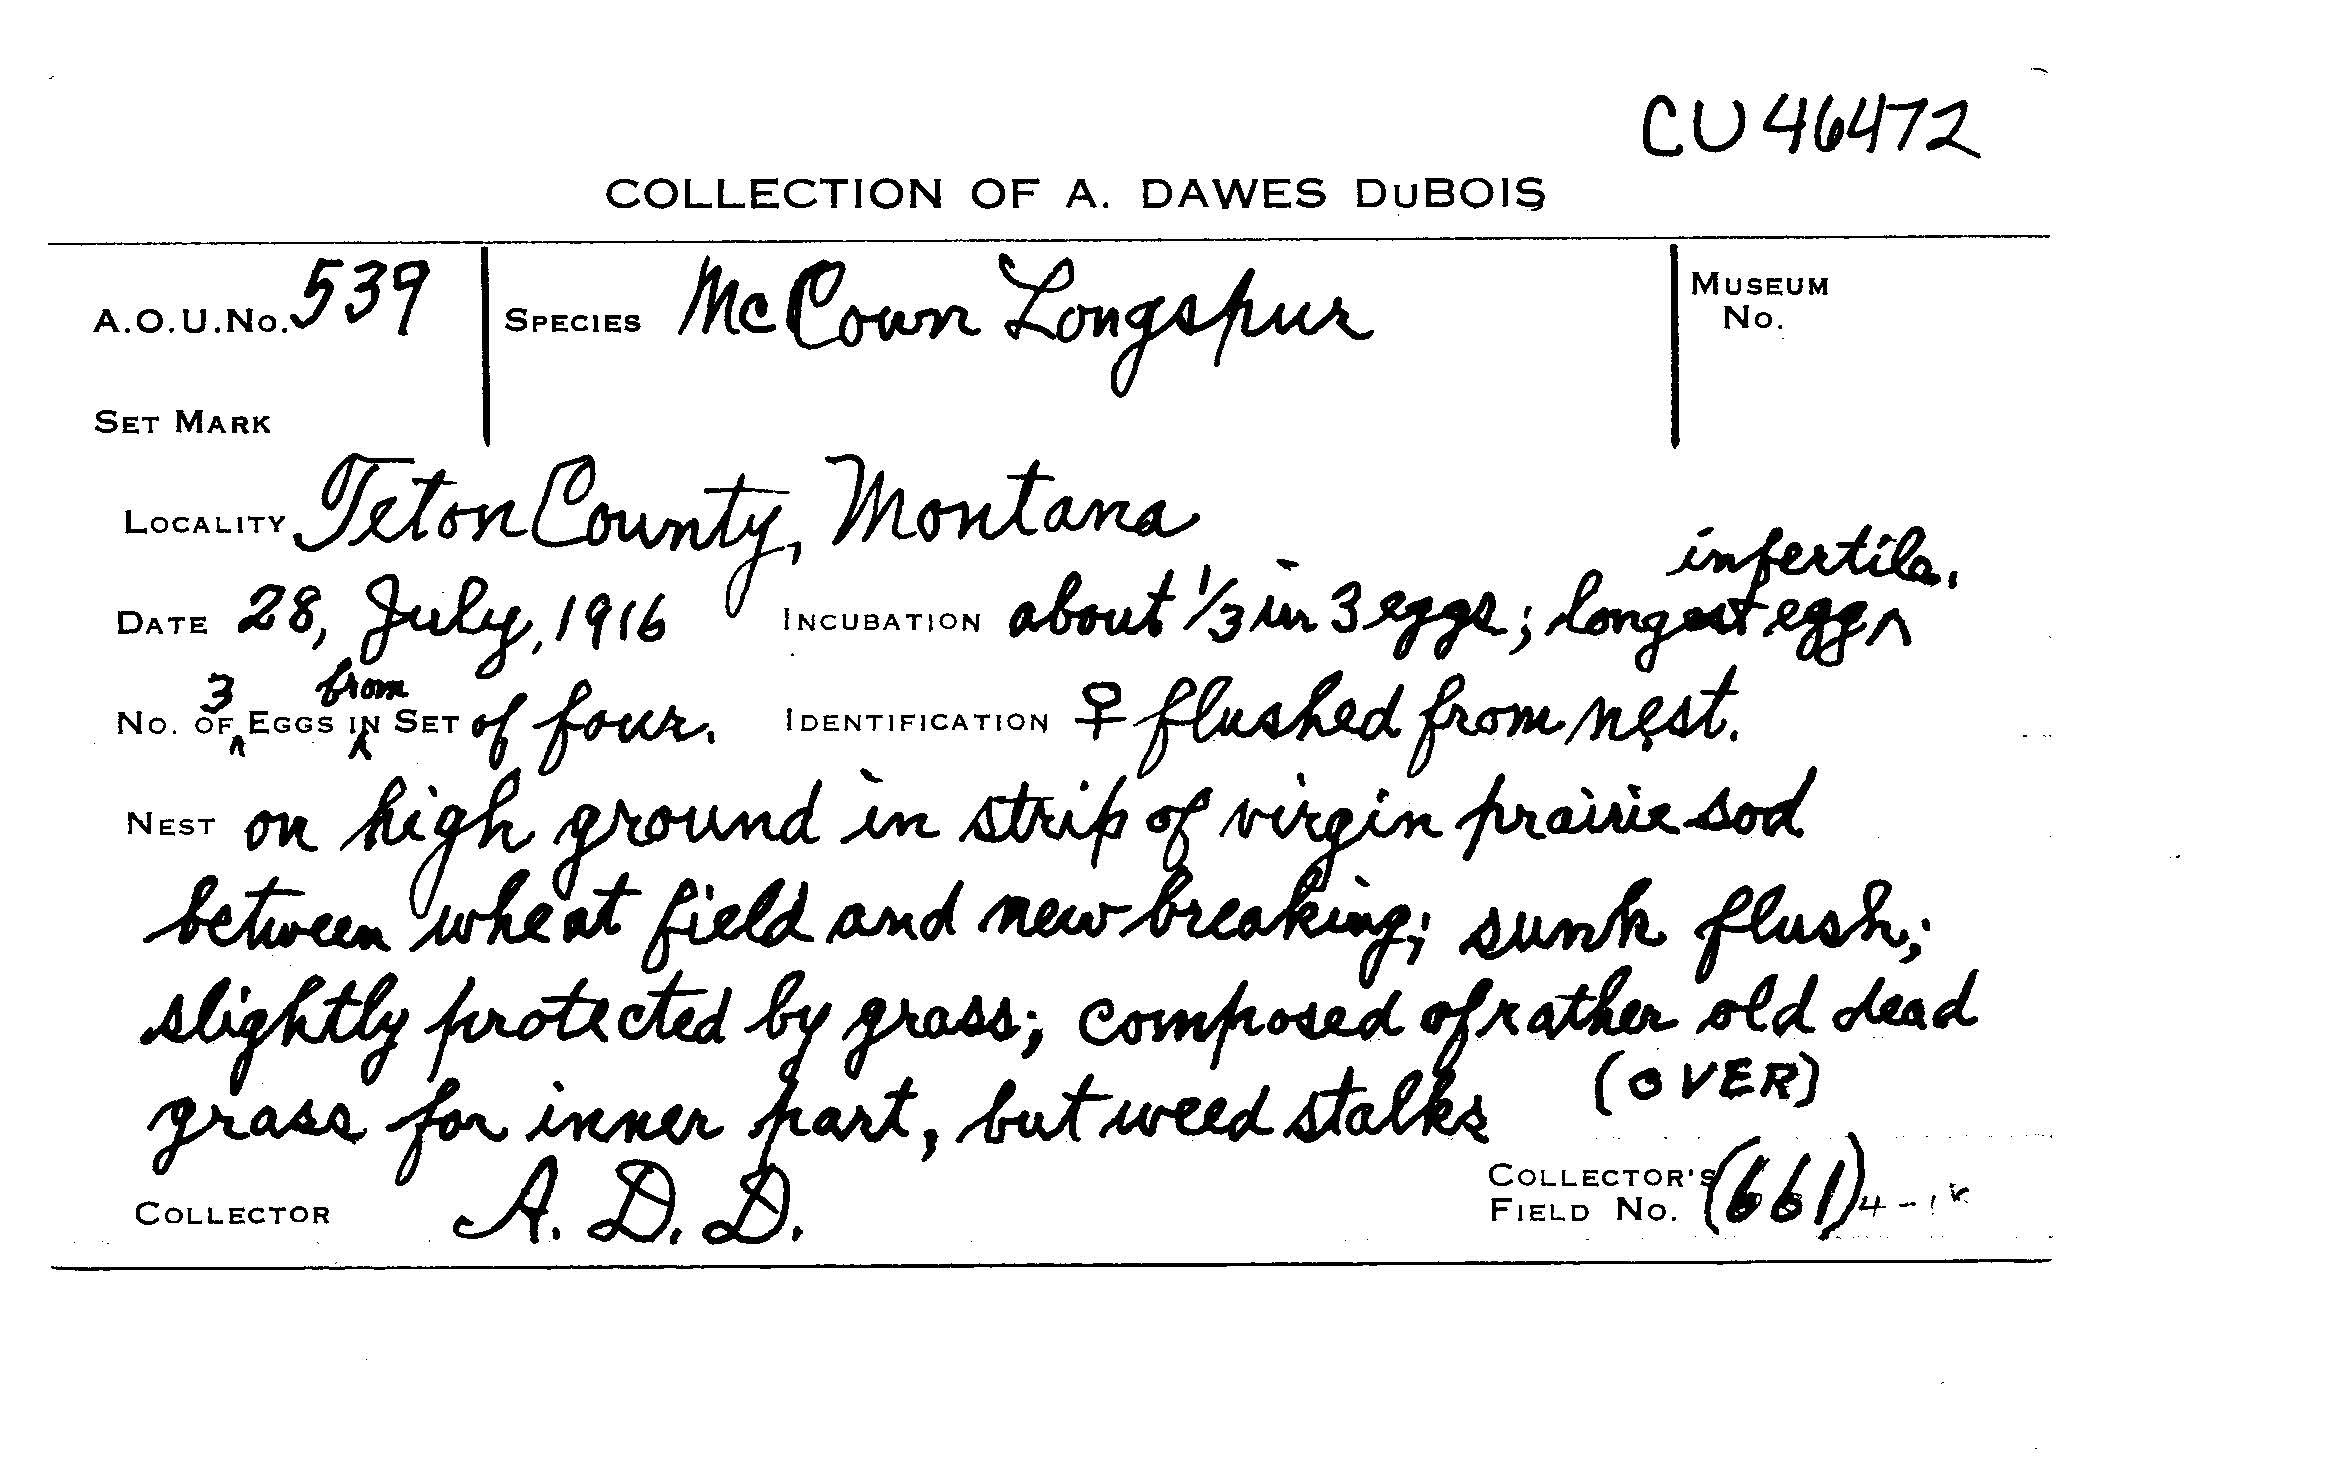 CU 46472
COLLECTION OF A. DAWES DuBOIS
A.O.U. No. 539
SPECIES McCown Longspur
MUSEUM No.
SET MARK
LOCALITY Teton County, Montana
DATE 28, July, 1916 INCUBATION about 1/3 in 3 eggs; longest egg ^ infertile.
NO. OF ^ 3 EGGS IN ^ from SET of four. IDENTIFICATION ♀ flushed from nest.
NEST on high ground in strip of virgin prairie sod
between wheat field and new breaking; sunk flush;
slightly protected by grass; composed of rather old dead
grass for inner part, but weed stalks (OVER)
COLLECTOR A. D. D. COLLECTOR'S FIELD No. (661) 4-1